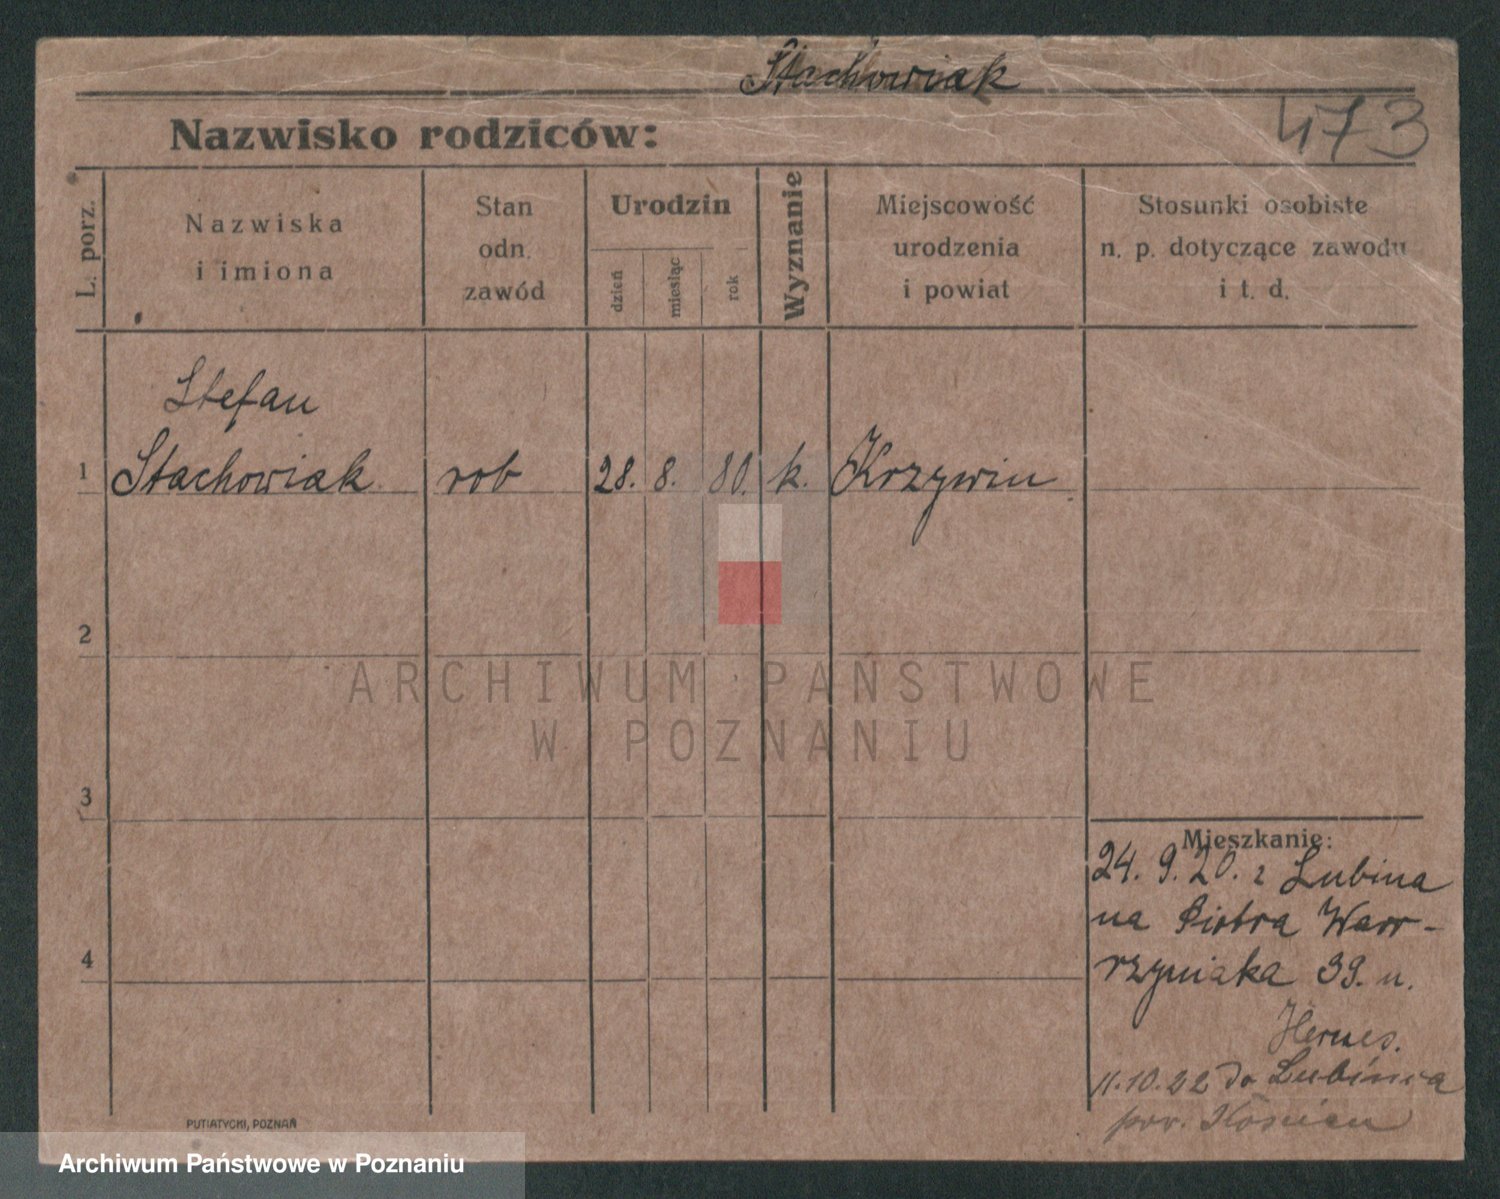 Stachowiak
473
Nazwisko rodziców:
L. porz.
Nazwiska
i imiona
Stan
odn.
zawód
Urodzin
dzień
miesiąc
rok
Wyznanie
Miejscowość
urodzenia
i powiat
Stosunki osobiste
n. p. dotyczące zawodu
i t. d.
Stefan
1 Stachowiak rob 28. 8. 80. k. Krzywin
2
ARCHIWUM PAŃSTWOWE
W POZNANIU
3
Mieszkanie:
24. 9. 20. z Lubina
na Piotra Waw-
4
rzyniaka 39. u.
11.10.22 do Lubinia
pow. Kościan
PUTIATYCKI, POZNAŃ
Archiwum Państwowe w Poznaniu